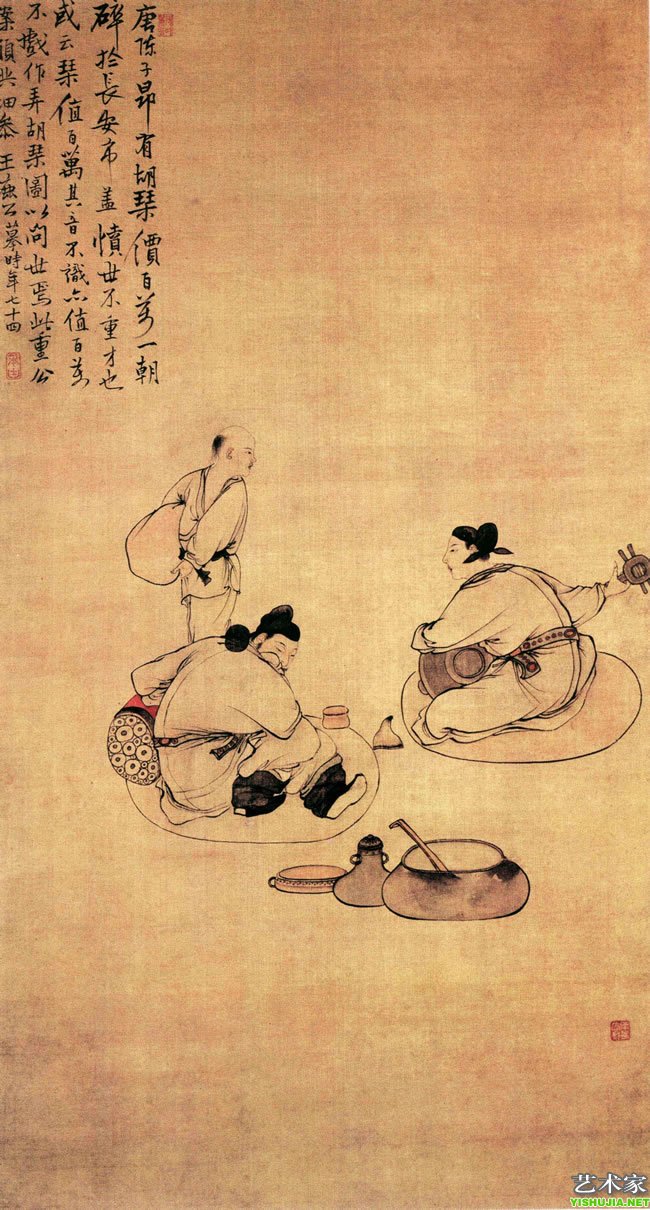 唐陈子昂有胡琹價百萬一朝
碎於長安市盖憤世不重才也
或云琹值百萬其音不識亦值百萬
不戲作弄胡琹圖以问世焉此重公
王 摹時年七十四
艺术家
YISHUJIA.NET